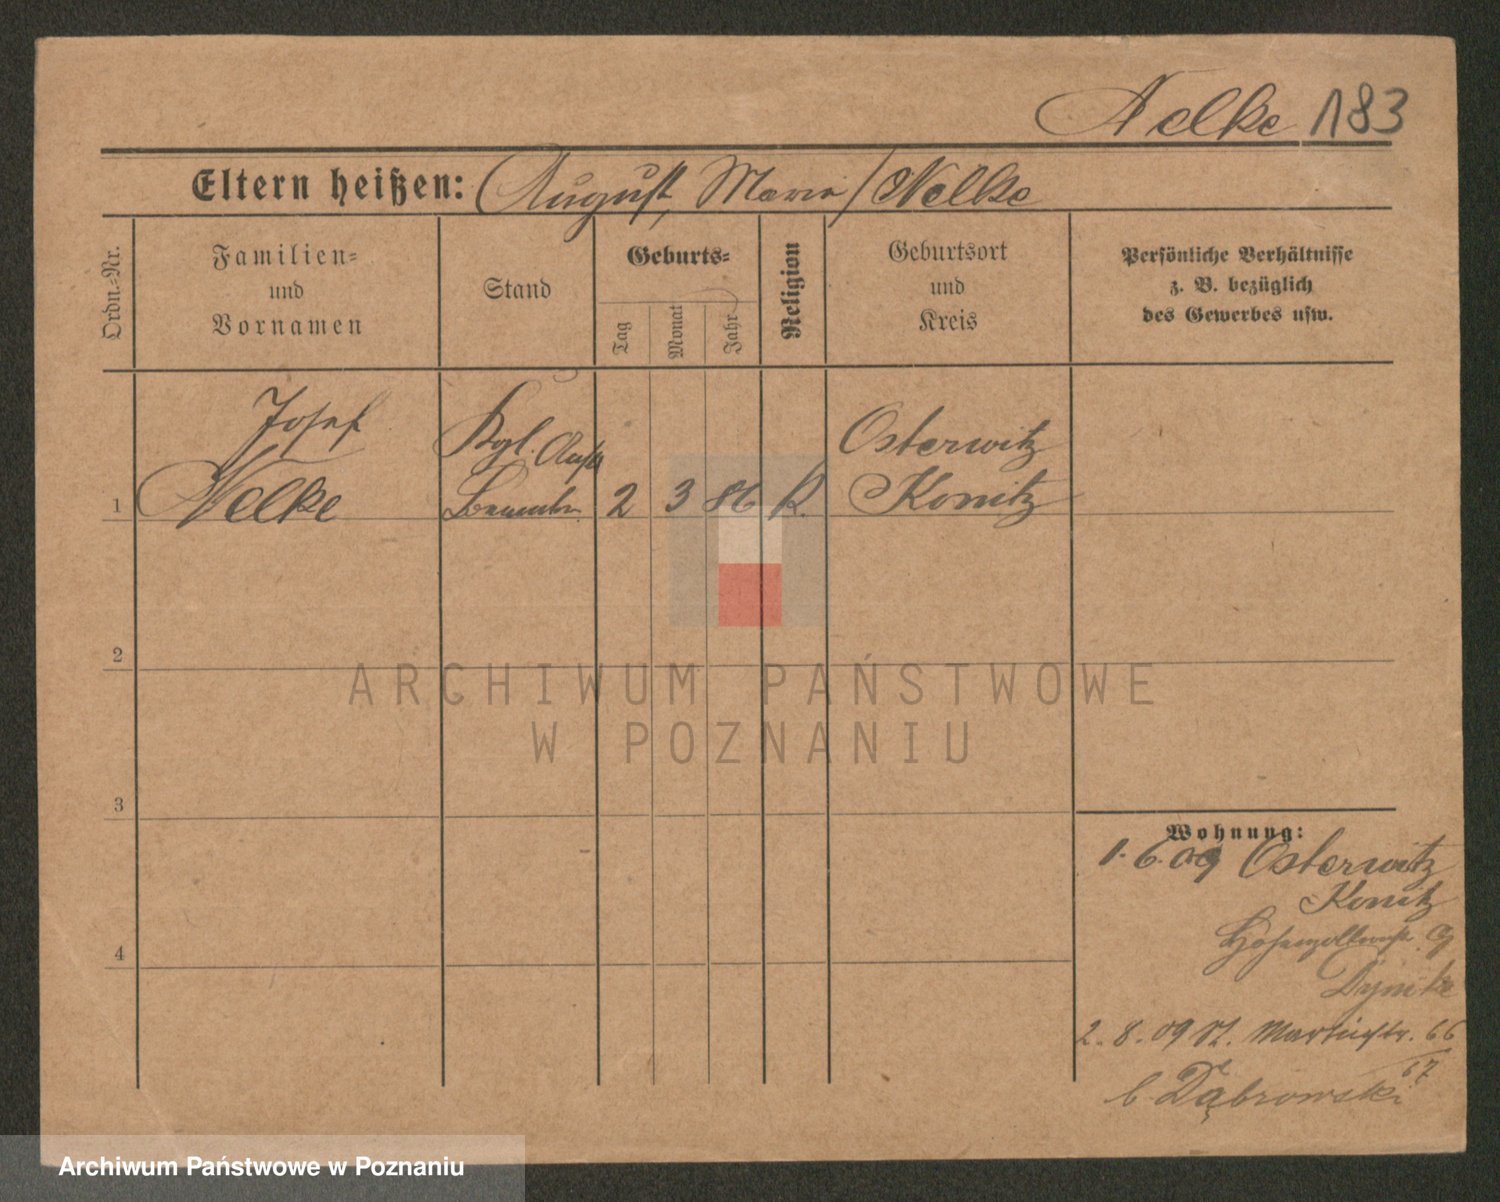 Nelke 183
Eltern heißen: August, Maria / Nelke
Ordn.-Nr.
Familien-
und
Vornamen
Stand
Geburts-
Tag
Monat
Jahr
Religion
Geburtsort
und
Kreis
Persönliche Verhältnisse
z. B. bezüglich
des Gewerbes usw.
Josef
Kgl.
Osterwitz
1 Nelke 2 3 86 K. Konitz
2
3
4
Wohnung:
1.6.09 Osterwitz
Konitz
Hohenzollernstr.
2.8.09 St. Martinstr. 66
67
b Dąbrowski
ARCHIWUM PAŃSTWOWE
W POZNANIU
Archiwum Państwowe w Poznaniu